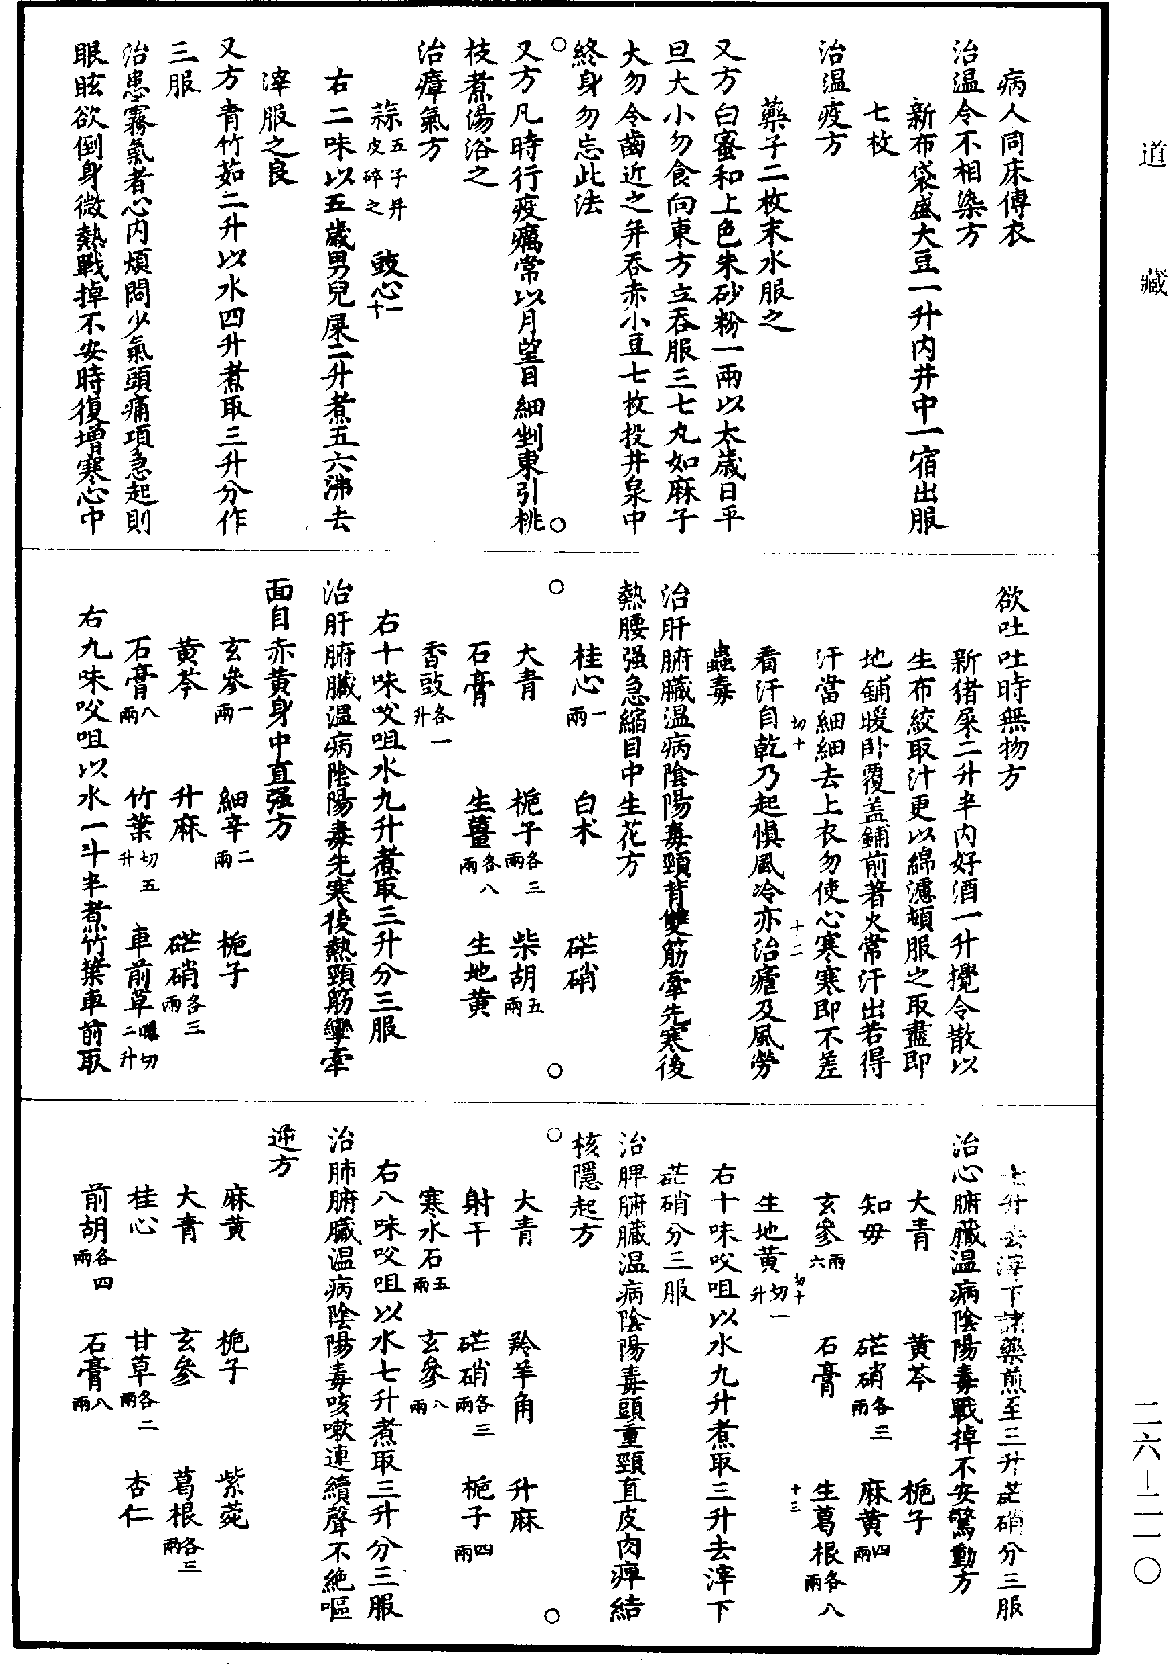 道藏
病人同床傳衣
治温令不相染方
新布袋盛大豆一升内井中一宿出服
七枚
治温疫方
藥子二枚末水服之
又方白蜜和上色朱砂粉一兩以太歲日平
旦大小勿食向東方立吞服三七丸如麻子
大勿令齒近之并吞赤小豆七枚投井泉中
終身勿忘此法
又方凡時行疫癘常以月望日細剉東引桃
枝煮湯浴之
治瘴氣方
蒜五子并皮碎之 豉心一十
右二味以五歲男兒屎二升煮五六沸去
滓服之良
又方青竹茹二升以水四升煮取三升分作
三服
治患霧氣者心内煩悶少氣頭痛項急起則
眼眩欲倒身微熱戰掉不安時復增寒心中
欲吐吐時無物方
新猪屎二升半内好酒一升攪令散以
生布絞取汁更以綿濾頓服之取盡即
地鋪暖卧覆蓋鋪前著火常汗出若得
汗當細細去上衣勿使心寒寒即不差
切十 十二
看汗自乾乃起慎風冷亦治瘧及風勞
蟲毒
治肝腑臟温病陰陽毒頸背雙筋牽先寒後
熱腰强急縮目中生花方
桂心一兩 白术 芒硝
大青 梔子各三兩 柴胡五兩
石膏 生薑各八兩 生地黄
香豉各一升
右十味㕮咀水九升煮取三升分三服
治肝腑臟温病陰陽毒先寒後熱頸筋攣牽
面目赤黄身中直强方
玄參一兩 細辛二兩 梔子
黄芩 升麻 芒硝各三兩
石膏八兩 竹葉切五升 車前草曝切二升
右九味㕮咀以水一斗半煮竹葉車前取
七升去滓下諸藥煎至三升芒硝分三服
治心腑臟温病陰陽毒戰掉不安驚動方
大青 黄芩 梔子
知母 芒硝各三兩 麻黄四兩
玄參六兩 石膏 生葛根各八兩
切十 十三
生地黄切一升
右十味㕮咀以水九升煮取三升去滓下
芒硝分三服
治脾腑臟温病陰陽毒頭重頸直皮肉痺結
核隱起方
大青 羚羊角 升麻
射干 芒硝各三兩 梔子四兩
寒水石五兩 玄參八兩
右八味㕮咀以水七升煮取三升分三服
治肺腑臟温病陰陽毒咳嗽連續聲不絶嘔
逆方
麻黄 梔子 紫菀
大青 玄參 葛根各三兩
桂心 甘草各二兩 杏仁
前胡各四兩 石膏八兩
二六—二一〇